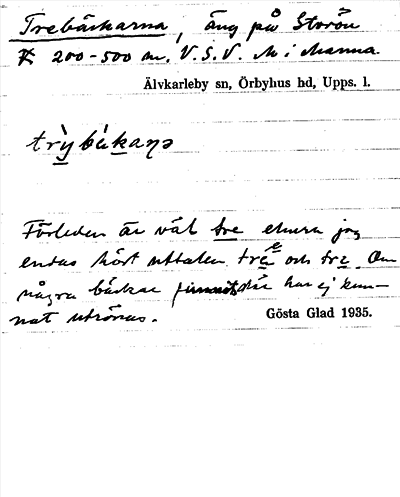 Trebäckarna, äng på Storön
200-500 m. V.S.V. M i Manna.
Älvkarleby sn, Örbyhus hd, Upps. l.
trỳbäkaṇə
Förleden är väl tre ehuru jag
endast hört uttalen och tre. Om
några bäckar finnits där har ej kun-
nat utrönas.
Gösta Glad 1935.